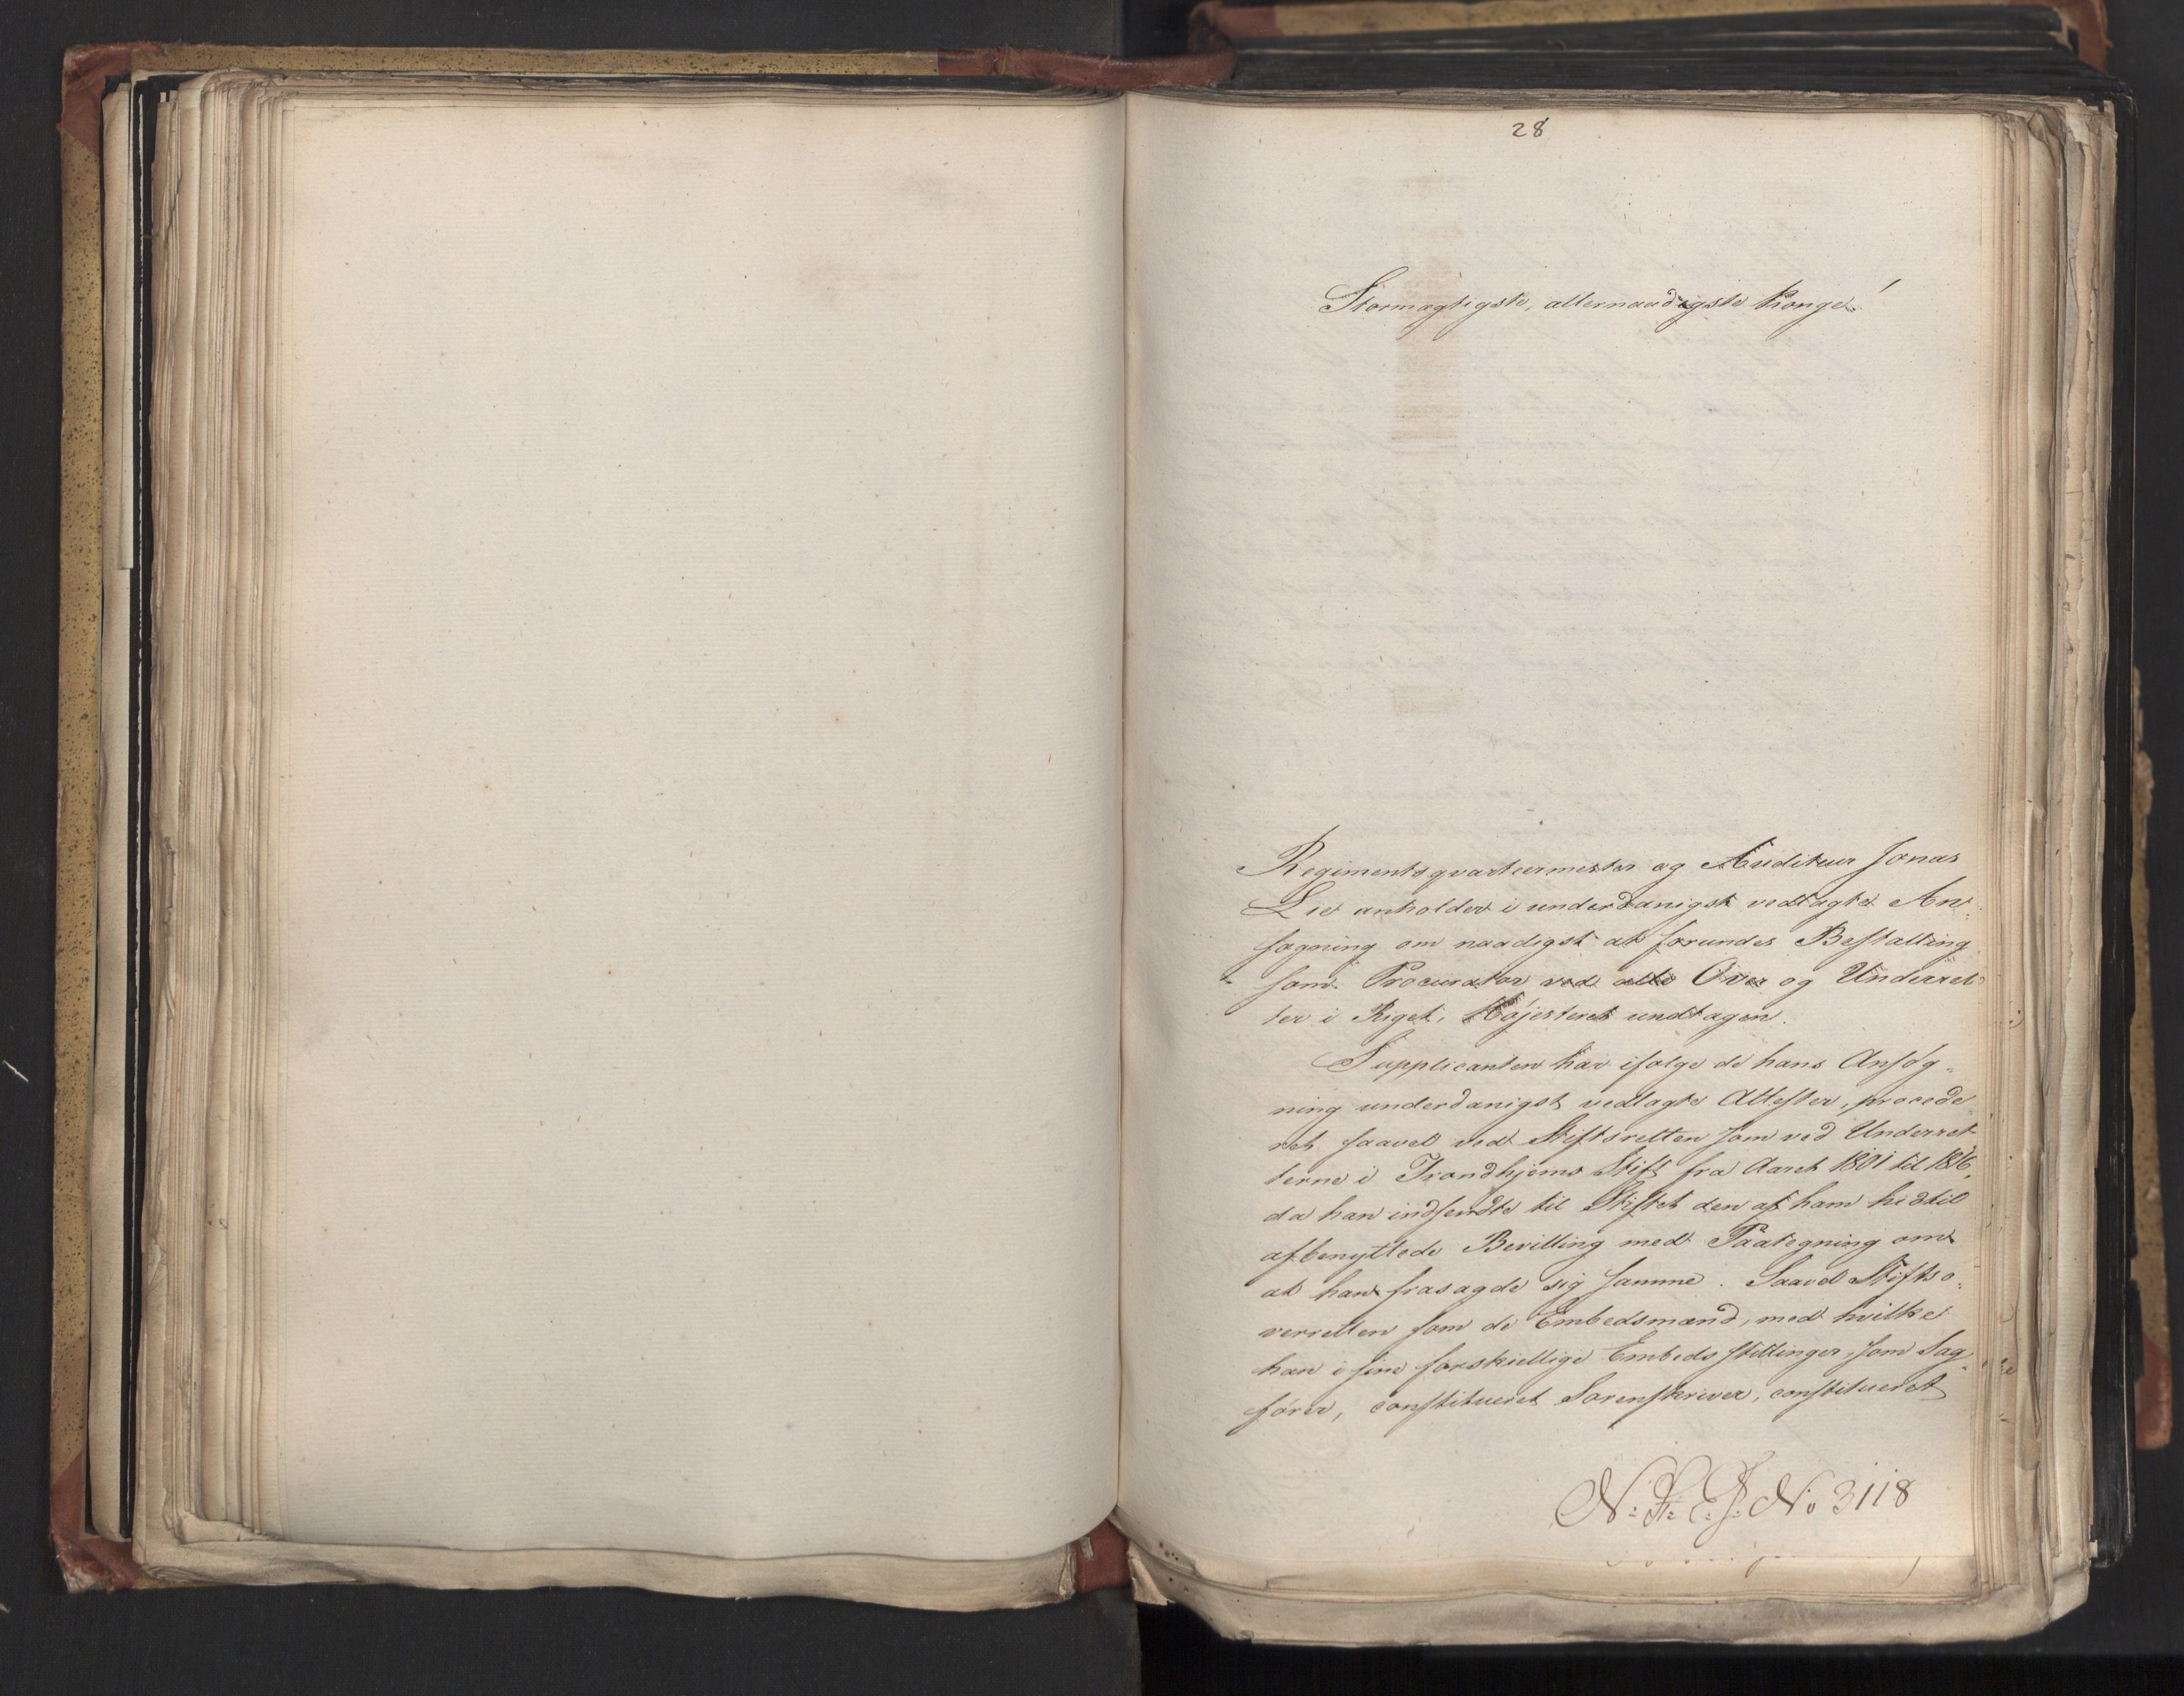 28
Stormægtigste, allernaadigste Konge!
Regimentsqvarteermester og Auditeur Jonas
Lie anholder i underdanigst vedlagte An-
søgning om naadigst at forundes Bestalling
som Procurator ved alle Over og Underret-
ter i Riget, Højesteret undtagen.
Supplicanten har ifølge de hans Ansøg-
ning underdanigst vedlagte Attester, procede
ret saavel ved Stiftsretten som ved Underret
terne i Trondhjems Stift fra Aaret 1801 til 1816,
da han indsendte til Stiftet den af ham hidtil
afbenyttede Bevilling med Paategning om
at han frasagde sig samme. Saavel Stiftso-
verretten som de Embedsmænd, med hvilke
han i sine forskiellige Embedsstillinger, som Sag-
fører, constitueret Sorenskriver, constitueret
No 3118